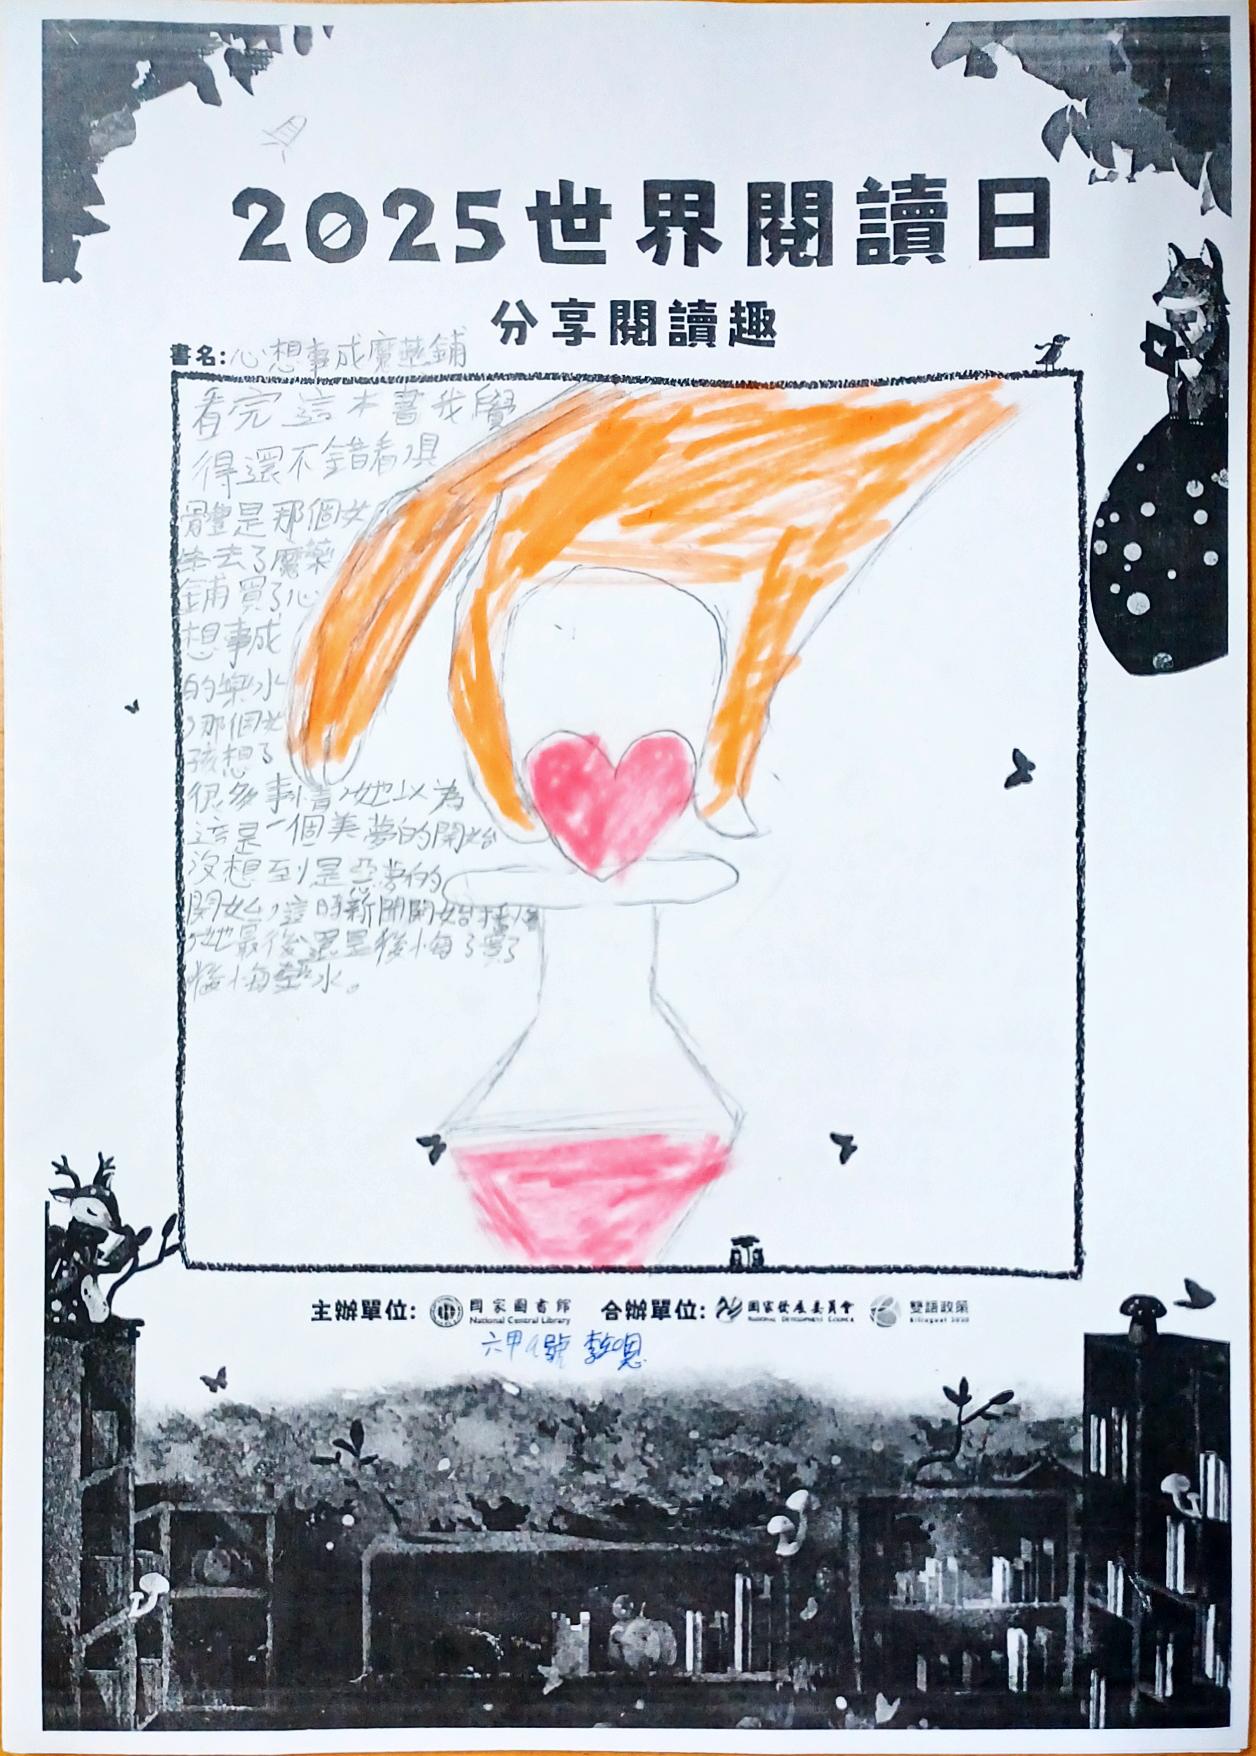 2025世界閱讀日
分享閱讀趣
書名:心想事成魔藥鋪
看完這本書我覺
得還不錯看,俱
體是那個女
去了魔藥
鋪買了心
想事成
的藥水
,那個女
孩想了
很多事情,她以為
這是一個美夢的開始
沒想到是惡夢的
開始,這時新聞開始
她最後還是後悔了買了
後悔藥水。
主辦單位: 國家圖書館 合辦單位: 國家發展委員會 雙語政策
National Central Library NATIONAL DEVELOPMENT COUNCIL Bilingual 2030
六甲 號 李 恩